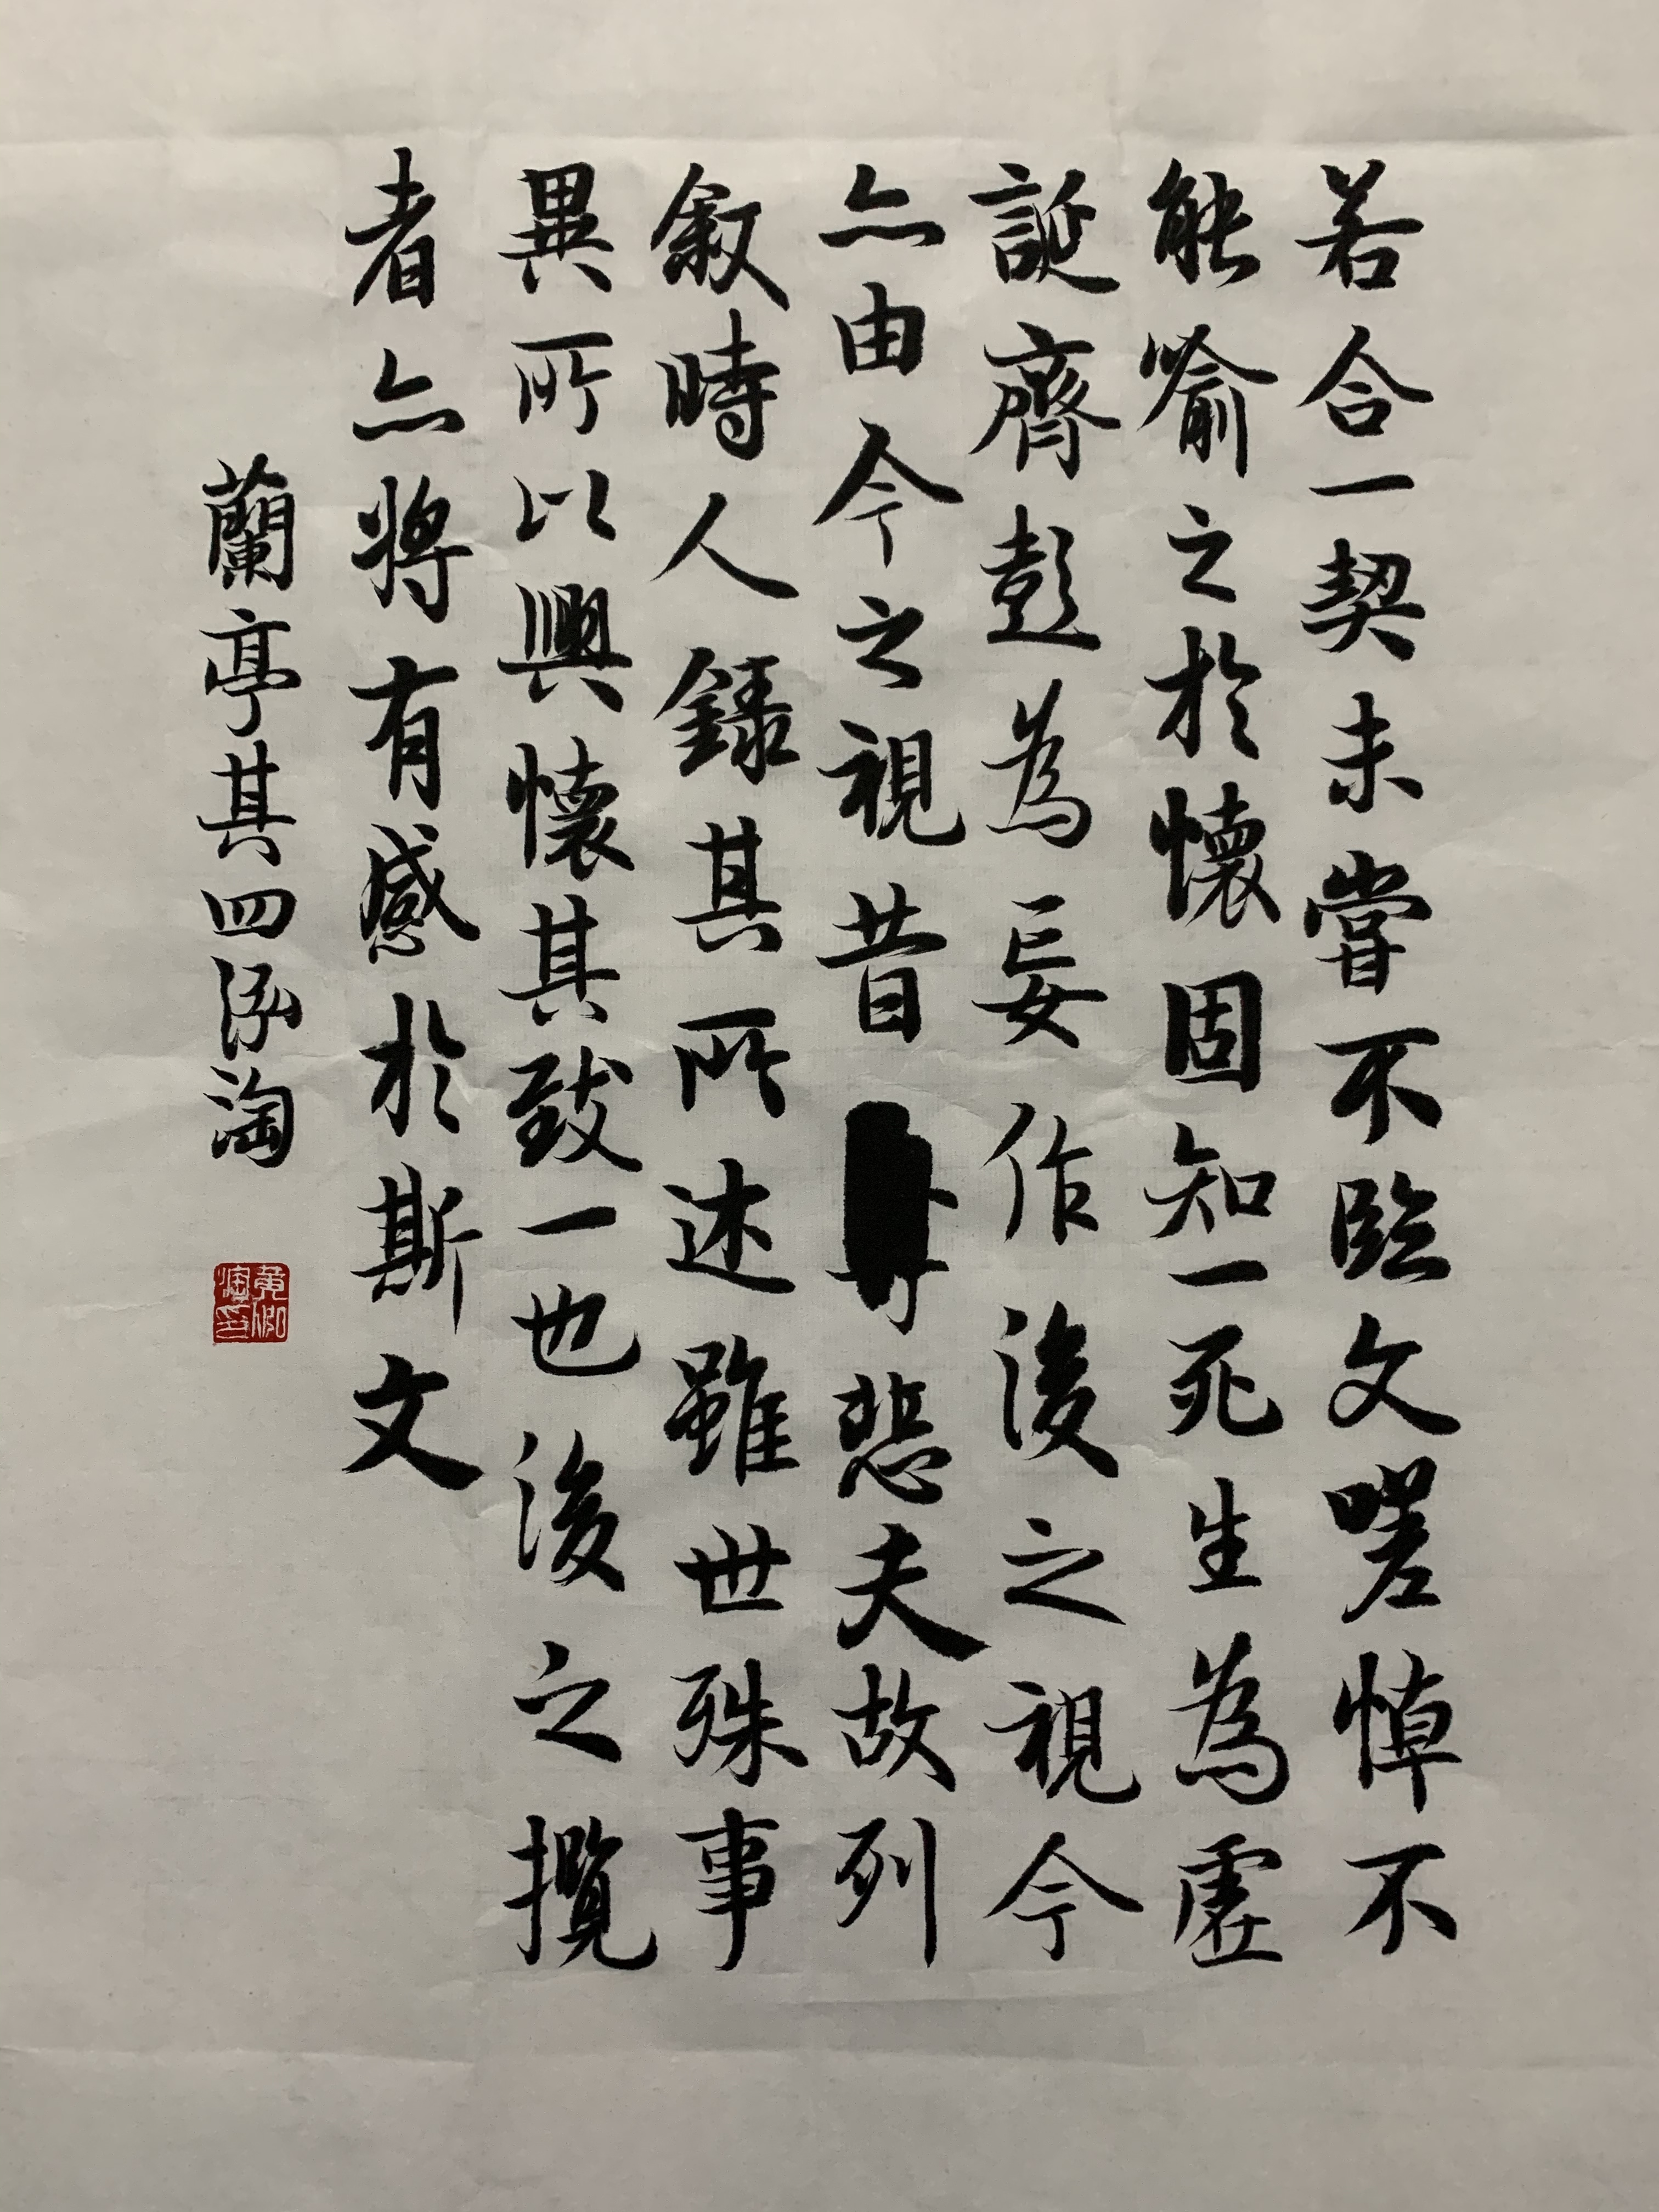 若合一契未嘗不臨文嗟悼不
能喻之於懷固知一死生為虛
誕齊彭為妄作後之視今
亦由今之視昔悲夫故列
叙時人錄其所述雖世殊事
異所以興懷其致一也後之攬
者亦將有感於斯文
蘭亭其四泓淘